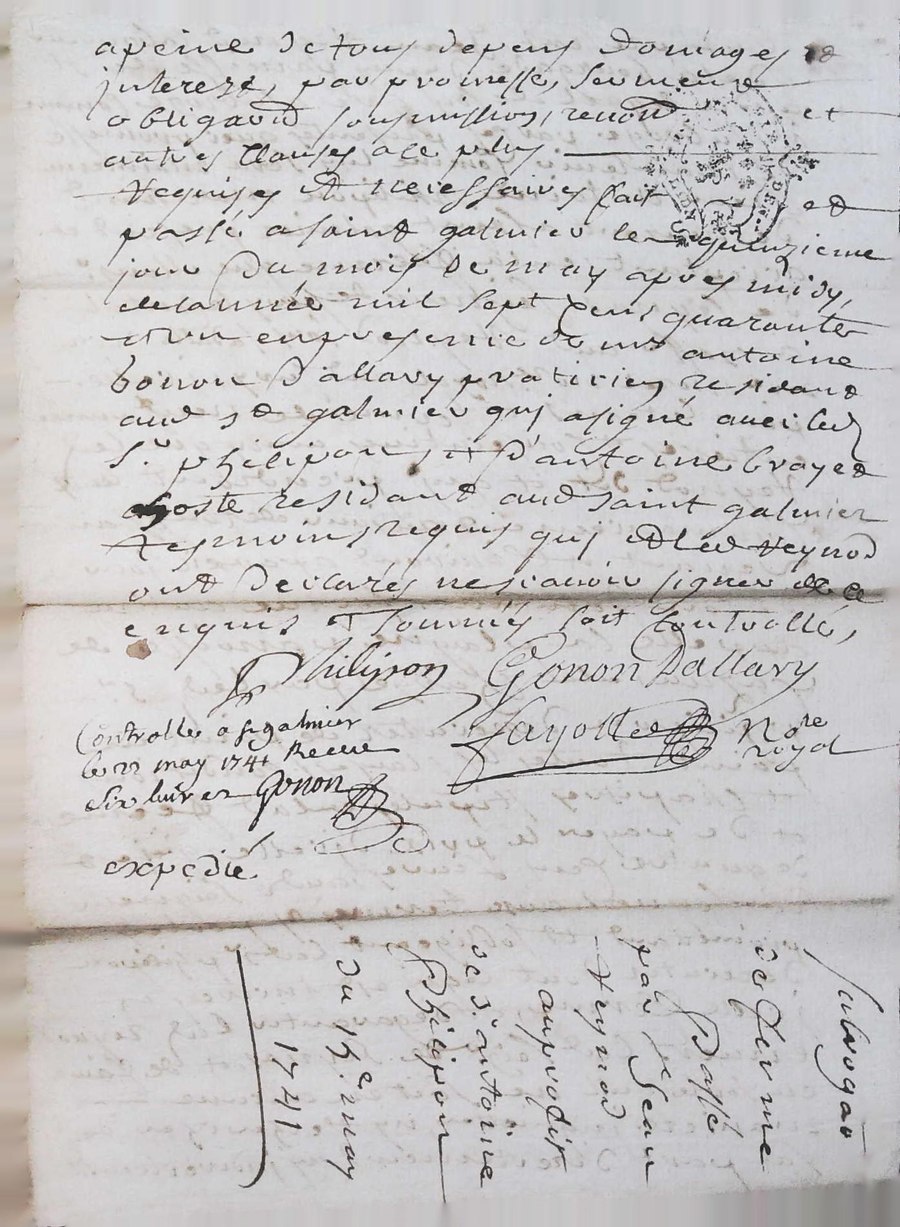 apeine de tous depens domages et
interezt, par promesse, serment
obligaon soubmission, renon et
autres clauses a ce plus
requises et necessaires fait et
passé a saint galmier le quinzieme
jour du mois de may apres midy,
de lannée mil sept cens quarante
et un en presence de mr antoine
gonon dallary praticien residant
aud st galmier qui a signé avec led
sr philipon, et d'antoine brayet
hoste residant aud saint galmier
tesmoins requis qui et led reynod
ont declarés ne scavoir signer de ce
enquis et sommés soit controllé,
Philipon Gonon Dallary
fayolle Nre
royal
Controllé a st galmier
le 22 may 1741 Receu
six livres Gonon
expedié
subrogaon
de ferme
Passé
par Jean
reynod
au profit
de sr antoine
Philipon
du 15e may
1741